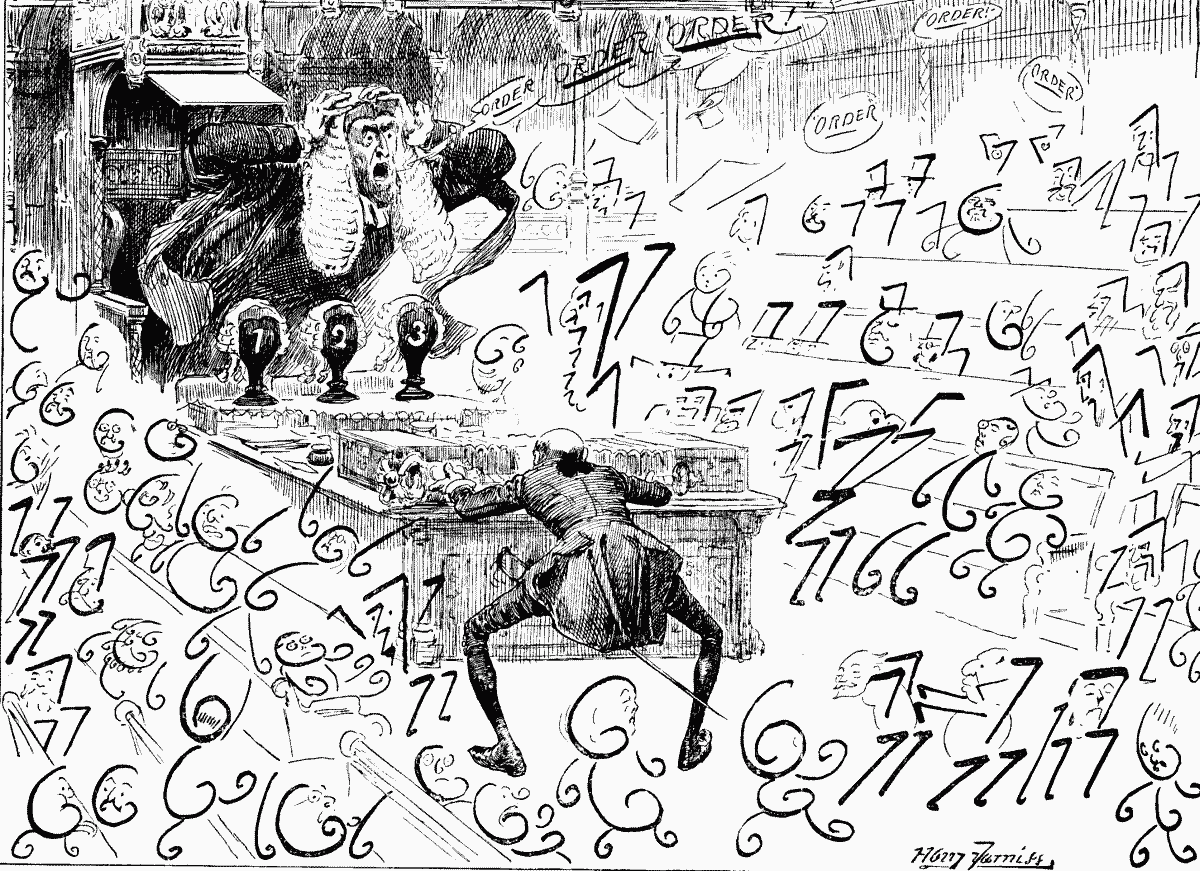 ORDER
ORDER
ORDER!
ORDER!
ORDER
ORDER
1 2 3
Harry Furniss.